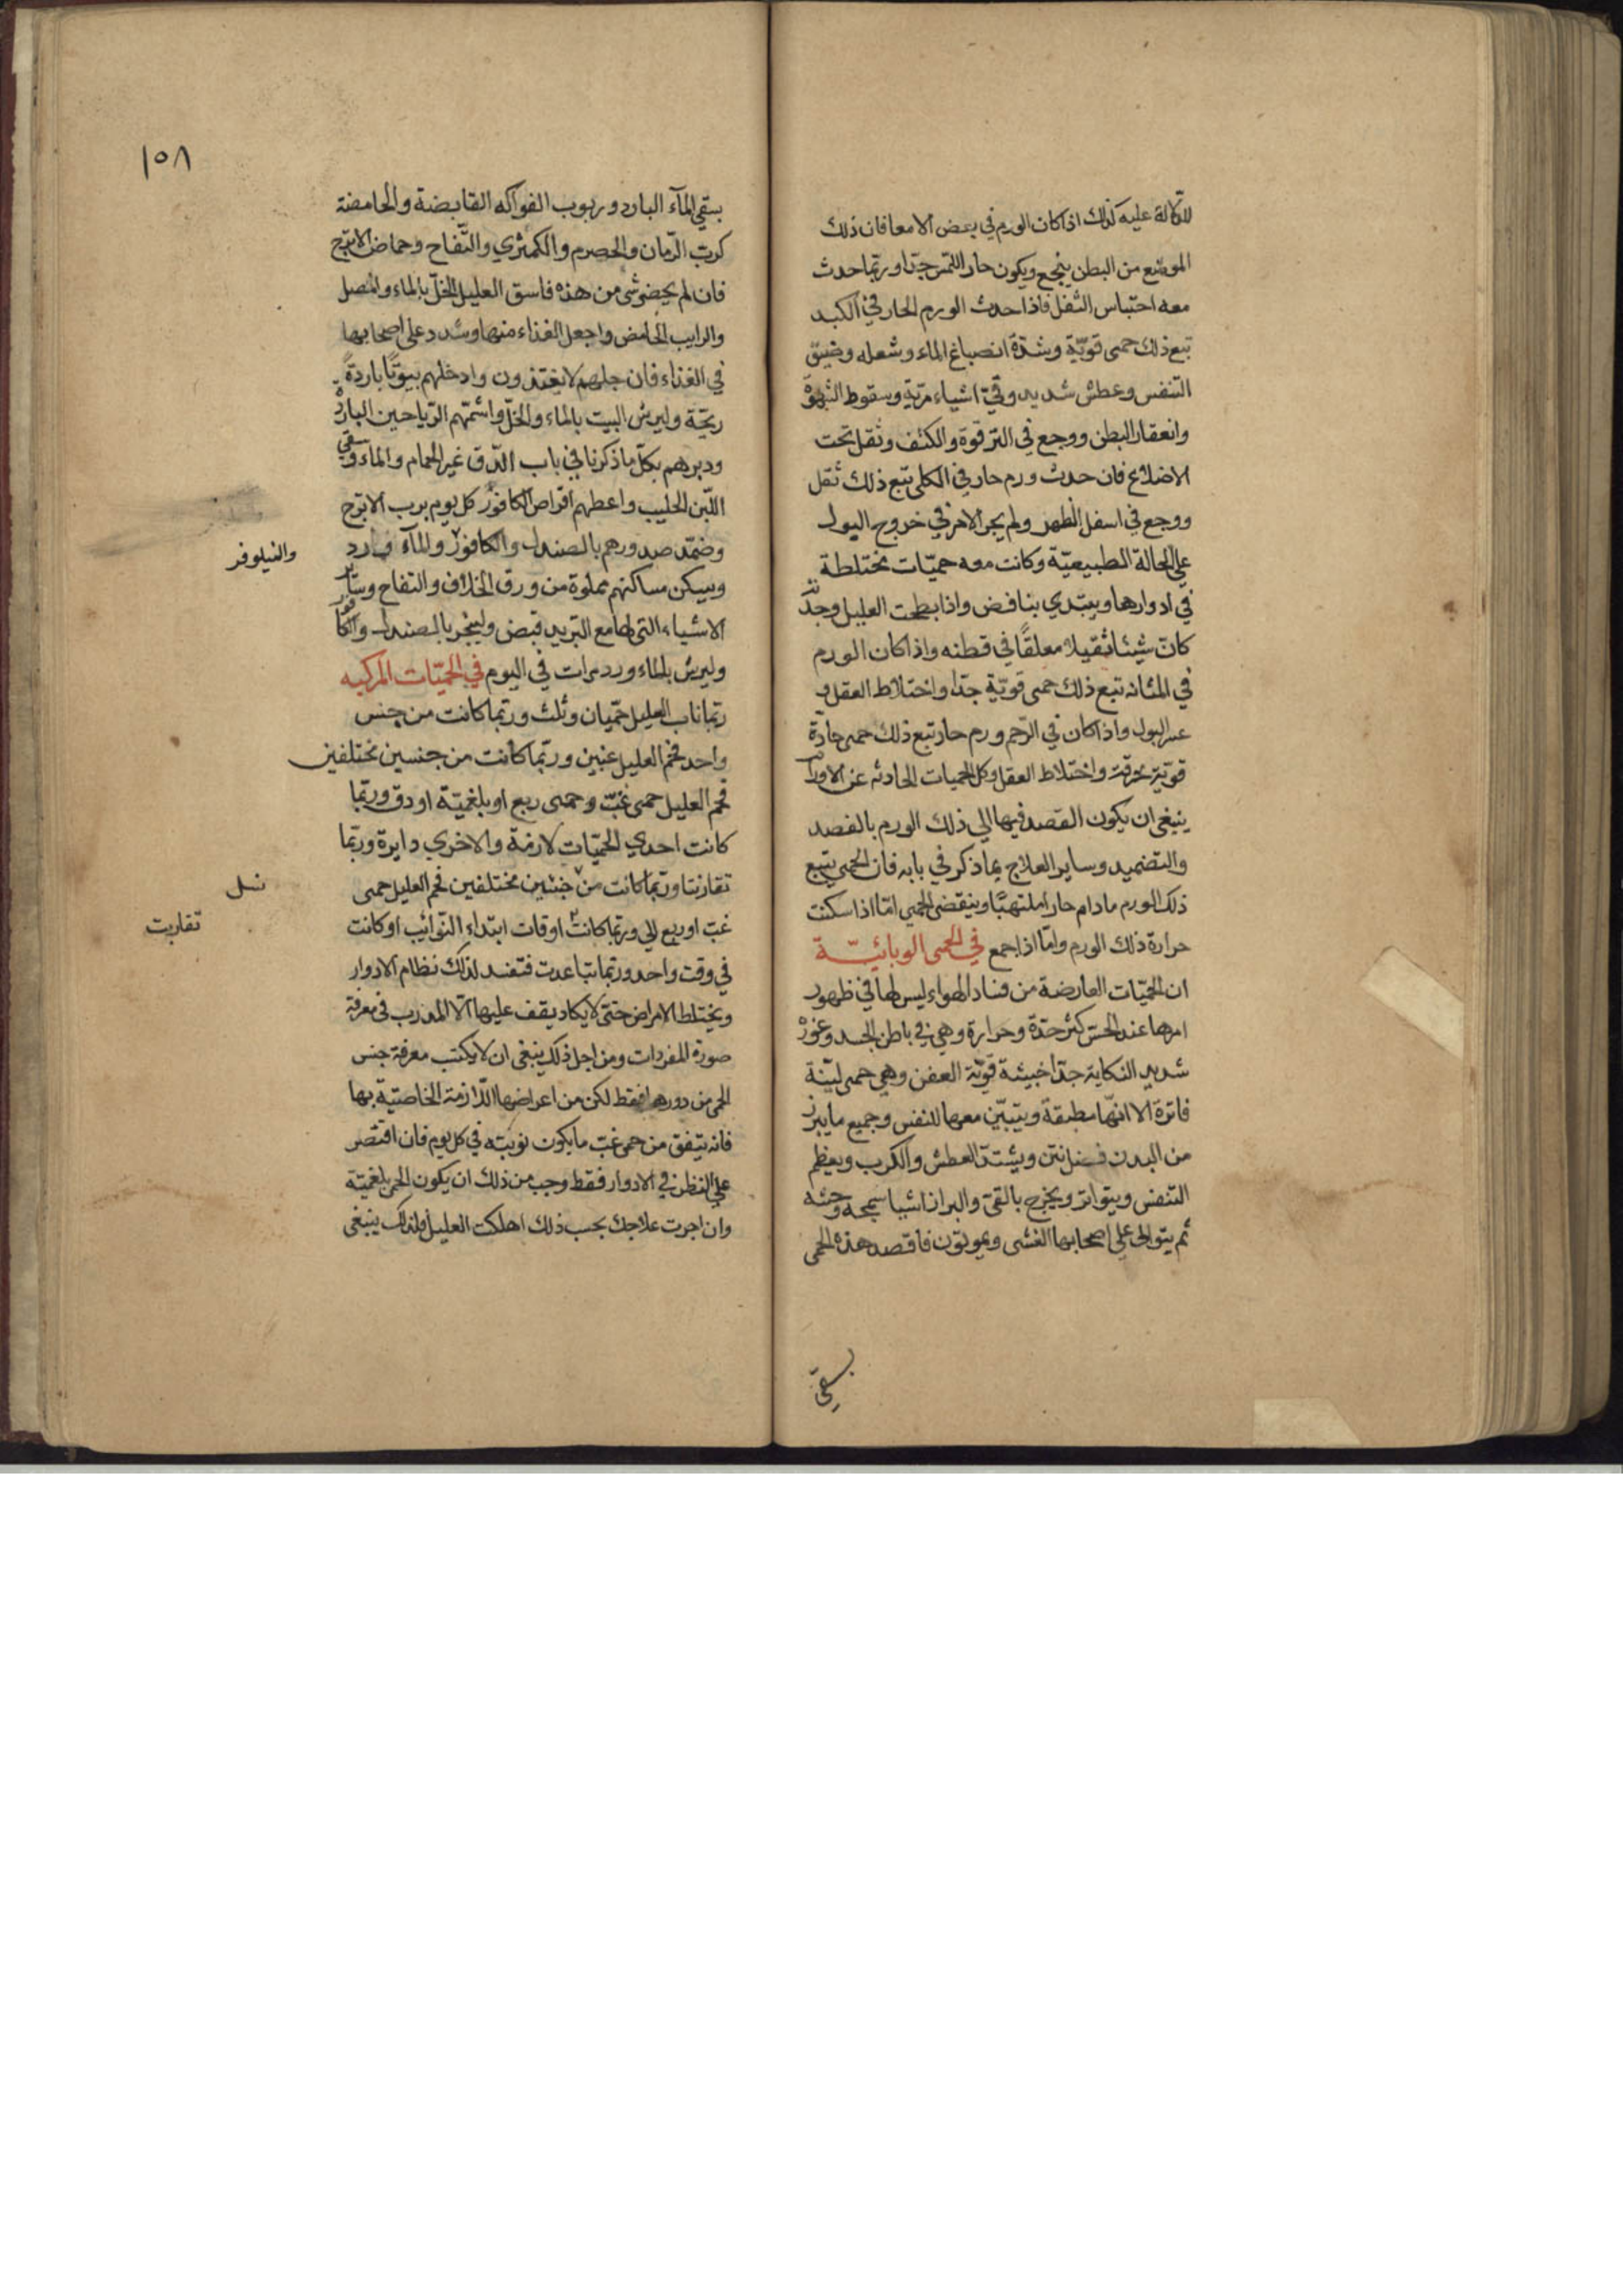 للدلالة عليه كذلك اذا كان الورم في بعض الامعا فان ذلك
الموضع من البطن ينجع ويكون حار اللمس جدّا وربّما حدث
معه احتباس الثفل فاذا حدث الورم الحار في الكبد
تبع ذلك حمى قويّة وشدّة انصباغ الماء وشعله وضيق
التنفس وعطش شديد وقئ اشياء مريّة وسقوط الشهوة
وانعقار البطن ووجع في الترقوة والكتف وثقل تحت
الاضلاع فان حدث ورم حار في الكلى تبع ذلك ثقل
ووجع في اسفل الظهر ولم يجر الامر في خروج البول
على الحالة الطبيعيّة وكانت معه حميّات مختلطة
في ادوارها ويبتدي بنافض واذا بطحت العليل وجدت
كانّ شيئا ثقيلا معلقًا في قطنه واذا كان الورم
في المثانه تبع ذلك حمى قويّة جدّا واختلاط العقل و
عسر البول واذا كان في الرّحم ورم حار تبع ذلك حمى حادّة
قويّة محرقة واختلاط العقل وكل الحميات الحادثه عن الاورام
ينبغي ان يكون القصد فيها الي ذلك الورم بالفصد
والتضميد وساير العلاج بما ذكر في بابه فان الحمى يتبع
ذلك الورم مادام حارا ملتهبًا وينقضى الحمي امّا اذا سكنت
حرارة ذلك الورم وامّا اذا جمع في الحمى الوبائيّة
ان الحميّات العارضة من فساد الهواء ليس لها في ظهور
امرها عند الحسّ كثر حدّة وحرارة وهي في باطن الجسد وغوره
شديد النكاية جدّا خبيثة قويّة العفن وهي حمى ليّنة
فاترة الا انّها مطبقة ويتبيّن معها للنفس وجميع ما يبرز
من البدن فضل نتن ويشتدّ العطش والكرب ويعظم
التنفس ويتواتر ويخرج بالقئ والبراز اشيا سمجه وحشه
ثم يتوالى على اصحابها الغشى ويموتون فاقصد هذه الحمى
بسقي
١٥٨
بسقي المآء البارد وربوب الفواكه القابضة والحامضة
كربّ الرّمان والحصرم والكمثري والتّفاح وحماض الاترج
فان لم يحضر شى من هذه فاسق العليل الخلّ بالماء والمصل
والرايب الحامض واجعل الغذاء منها وشدد على اصحابها
في الغذاء فان جلهم لا يغتذون وادخلهم بيوتًا باردةً
ريحّة وليرش البيت بالماء والخلّ واشمّهم الرّياحين الباردة
ودبرهم بكلّ ما ذكرنا في باب الدّق غير الحمام والماء وسقي
اللّبن الحليب واعطهم اقراص الكافور كل يوم برب الاترج
وضمّد صدورهم بالصندل والكافور والمآء ورد
والنيلوفر
ويسكن مساكنهم مملوة من ورق الخلاف والتفاح وساير
الاشياء التى لها مع التبريد قبض وليبخر بالصندل والكافور
وليرش بالماء ورد مرات في اليوم في الحميّات المركبه
ربّما ناب العليل حمّيان وثلث وربّما كانت من جنس
واحد فحم العليل غبّين وربّما كانت من جنسين مختلفين
فحم العليل حمى غبّ وحمى ربع او بلغميّة او دق وربّما
كانت احدي الحميّات لازمة والاخري دايرة وربّما
تقارنتا وربّما كانت من جنسين مختلفين فحم العليل حمى
غبّ او ربع الي وربّما كانت اوقات ابتداء النّوايب او كانت
تقاربت
في وقت واحد وربّما تباعدت فتفسد لذلك نظام الادوار
ويختلط الامراض حتى لا يكاد يقف عليها الّا المدرب فى معرفة
صورة المفردات ومن اجل ذلك ينبغي ان لا يكتب معرفة جنس
الحمى من دورها فقط لكن من اعراضها اللّازمة الخاصيّة بها
فانه يتفق من حمى غبّ ما يكون نوبته في كل يوم فان اقتصر
علي النظر في الادوار فقط وجب من ذلك ان يكون الحمى بلغميّة
وان اجرت علاجك بحسب ذلك اهلكت العليل فلذلك ينبغى